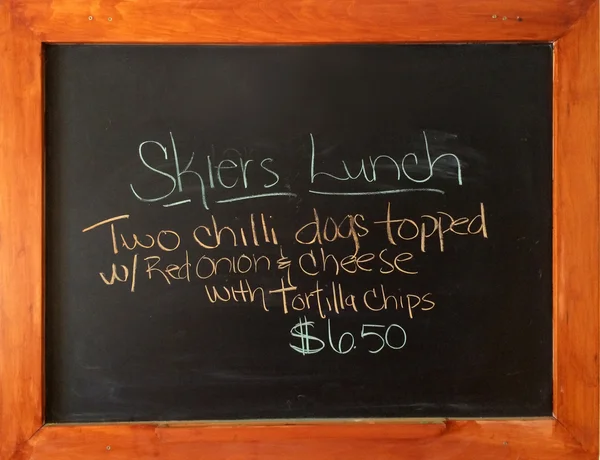 Skiers Lunch
Two chilli dogs topped
w/ Red onion & cheese
with Tortilla Chips
$6.50